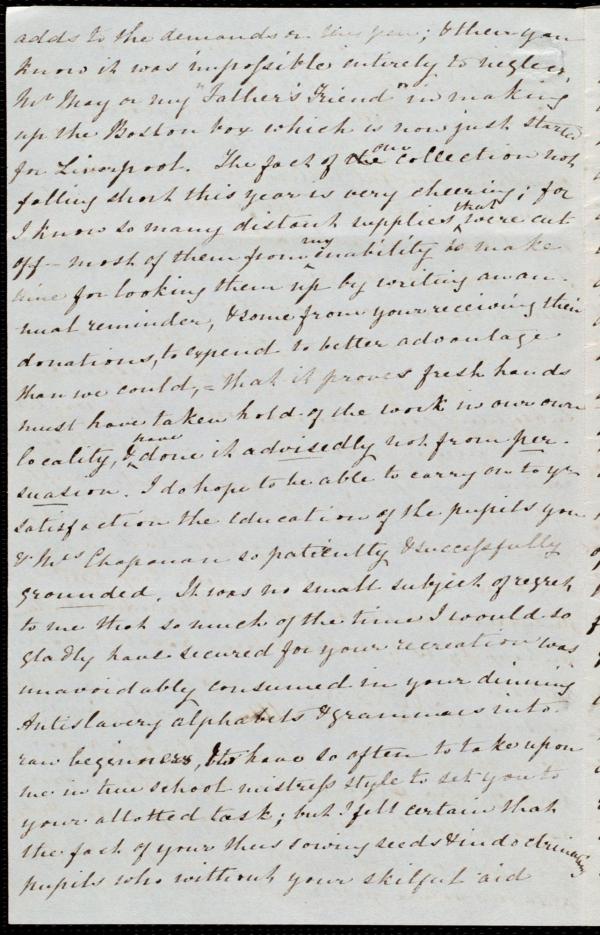 adds to the demands on this year; & then you
know it was impossible entirely to neglect
Mr May or my "Father's Friend" in making
up the Boston box which is now just started
for Liverpool. The fact of the our collection not
falling short this year is very cheering; for
I know so many distant supplies that were cut
off – most of them from my inability to make
time for looking them up by writing an an-
nual reminder, & some from your receiving their
donations, to expend to better advantage
than we could, – that it proves fresh hands
must have taken hold of the work in our own
locality, & have done it advisedly not from per-
suasion. I do hope to be able to carry on to yr
satisfaction the education of the pupils you
& Mrs Chapman so patiently & successfully
grounded. It was no small subject of regret
to me that so much of the time I would so
gladly have secured for your recreation was
unavoidably consumed in your dinning
Antislavery alphabets & grammars into
raw beginners, & to have so often to take upon
me in true school mistress style to set you to
your allotted task; but I felt certain that
the fact of your thus sowing seeds & indoctrinating
pupils who without your skilful aid